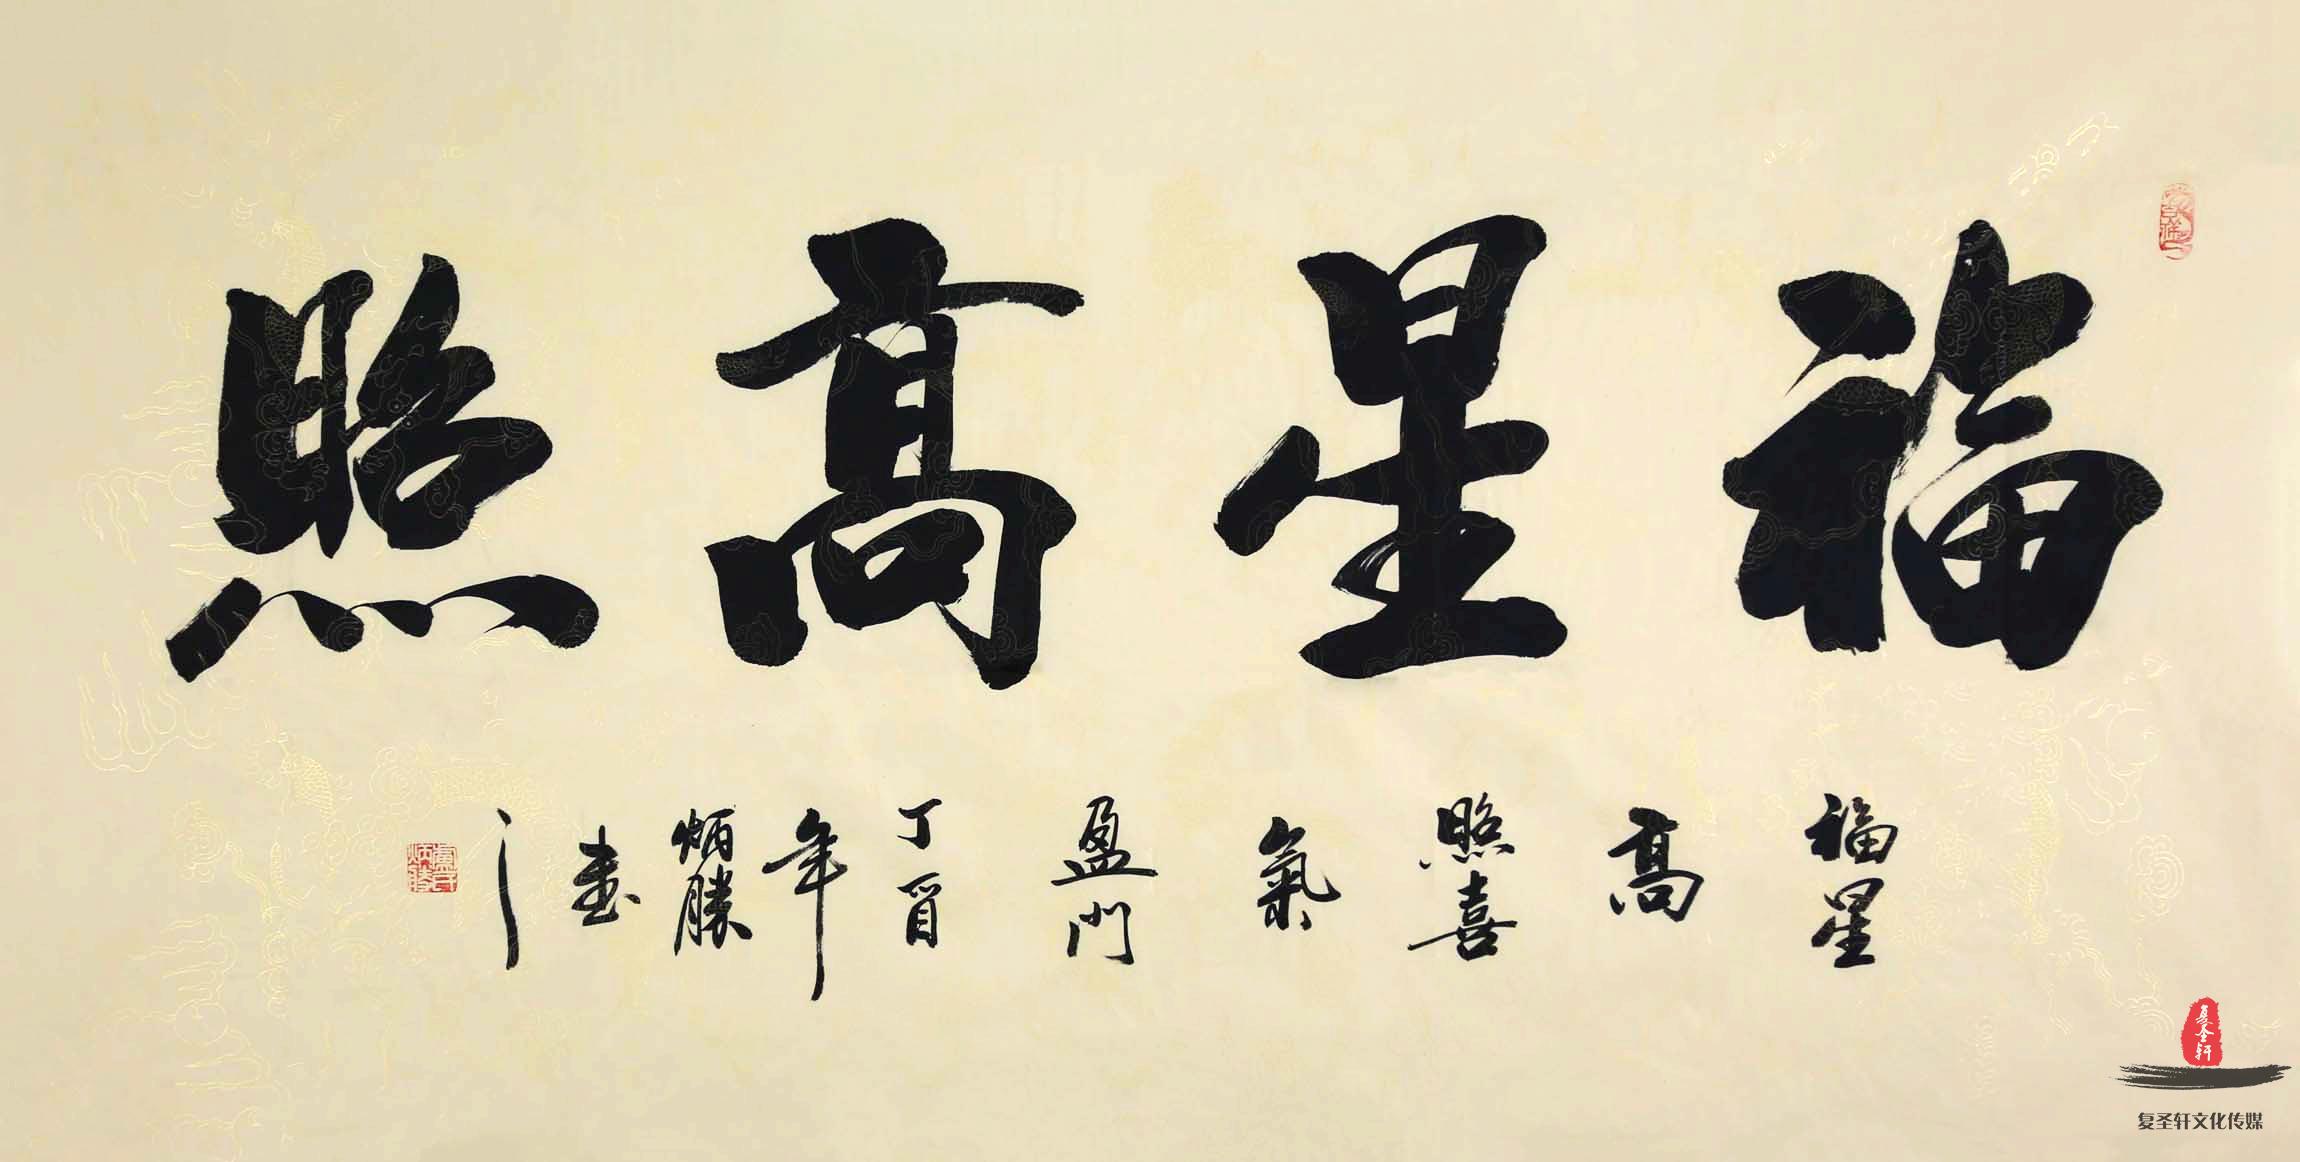 福星高照
福星高照喜氣盈門
丁酉年炳勝書
盧氏
炳勝
复圣轩
复圣轩文化传媒